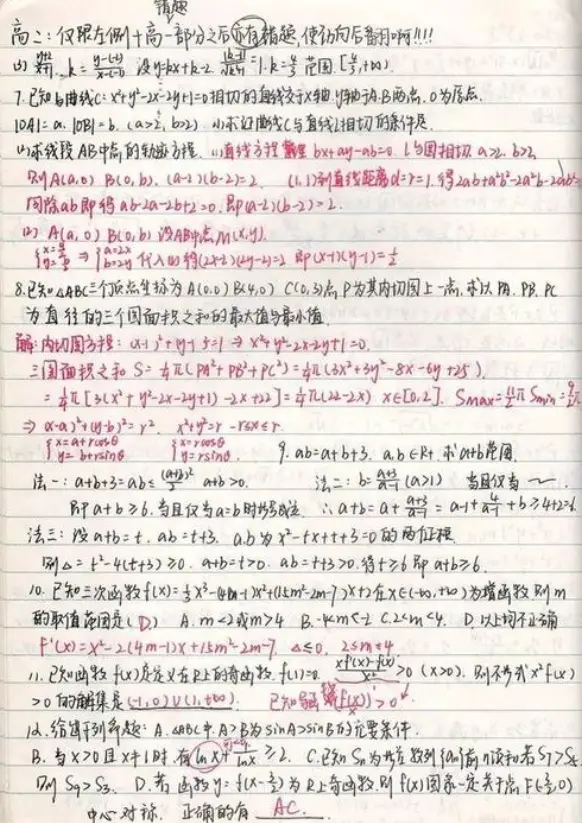 错题
高二: 仅限左侧+高一部分之后亦有错题,使劲向后翻啊!!!!
7.已知曲线C: x²+y²-2x-2y+1=0相切的直线交于x轴.y轴于A.B两点.O为原点.
|OA|=a. |OB|=b. (a>2, b>2) ⑴求证曲线C与直线l相切的条件是
⑵求线段AB中点的轨迹方程. ⑴直线方程 bx+ay-ab=0. l与圆相切. a>2, b>2,
则 A(a,0) B(0,b). (a-2)(b-2)=2. (1,1)到直线距离d=r=1.得2ab+a²b²-2a²b-2ab²=
同除ab即得 ab-2a-2b+2=0.即(a-2)(b-2)=2.
⑵ A(a,0) B(0,b) 设AB中点M(x,y).
{x=a/2 y=b/2 ⇒ {a=2x b=2y 代入⑴得(2x-2)(2y-2)=2 即(x-1)(y-1)=1/2
8.已知△ABC三个顶点坐标为A(0,0) B(4,0) C(0,3)点P为其内切圆上一点,求以PA. PB. PC
为直径的三个圆面积之和的最大值与最小值.
解:内切圆方程: (x-1)²+(y-1)²=1 ⇒ x²+y²-2x-2y+1=0.
三圆面积之和 S= 1/4π(PA²+PB²+PC²)=1/4π(3x²+3y²-8x-6y+25).
= 1/4π[3(x²+y²-2x-2y+1)-2x+22]=1/4π(22-2x) x∈[0,2]. Smax=11/2π Smin=9/2π
⇒ (x-a)²+(y-b)²=r². x²+y²=r -r≤x≤r.
{x=a+rcosθ y=b+rsinθ {x=rcosθ y=rsinθ. 9. ab=a+b+3. a,b∈R+.求a+b范围.
法一: a+b+3=ab≤(a+b)²/2 a+b>0. 法二: b=a+3/a-1 (a>1) 当且仅当
即a+b≥6.当且仅当a=b时等号成立. ∴a+b=a+a+3/a-1=a-1+4/a-1+b≥4+2=6
法三: 设a+b=t. ab=t+3. a.b为x²-tx+t+3=0的两征根
则△=t²-4(t+3)≥0. a+b=t>0. ab=t+3>0.得t≥6 即a+b≥6.
10. 已知三次函数f(x)=1/3x³-(4m-1)x²+(15m²-2m-7)x+2在x∈(-∞,+∞)为增函数则m
的取值范围是(D) A. m<2或m>4 B. -4<m<-2 C.2<m<4. D.以上均不正确
F'(x)=x²-2(4m-1)x+15m²-2m-7. △≤0. 2≤m≤4
11.已知函数f(x)是定义在R上的奇函数. f(1)=0. xf'(x)-f(x)/x²>0 (x>0). 则不等式x²f(x)
>0的解集是(-1,0)∪(1,+∞).
12.给出下列命题: A.△ABC中.A>B为sinA>sinB的充要条件.
B.当x>0且x≠1时.有lnx+1/lnx≥2. C.已知Sn为等差数列{an}前n项和若S7>S5
则S9>S3. D.若函数y=f(x-3/2)为R上奇函数.则f(x)图象一定关于点F(3/2,0)
中心对称. 正确的有 AC.